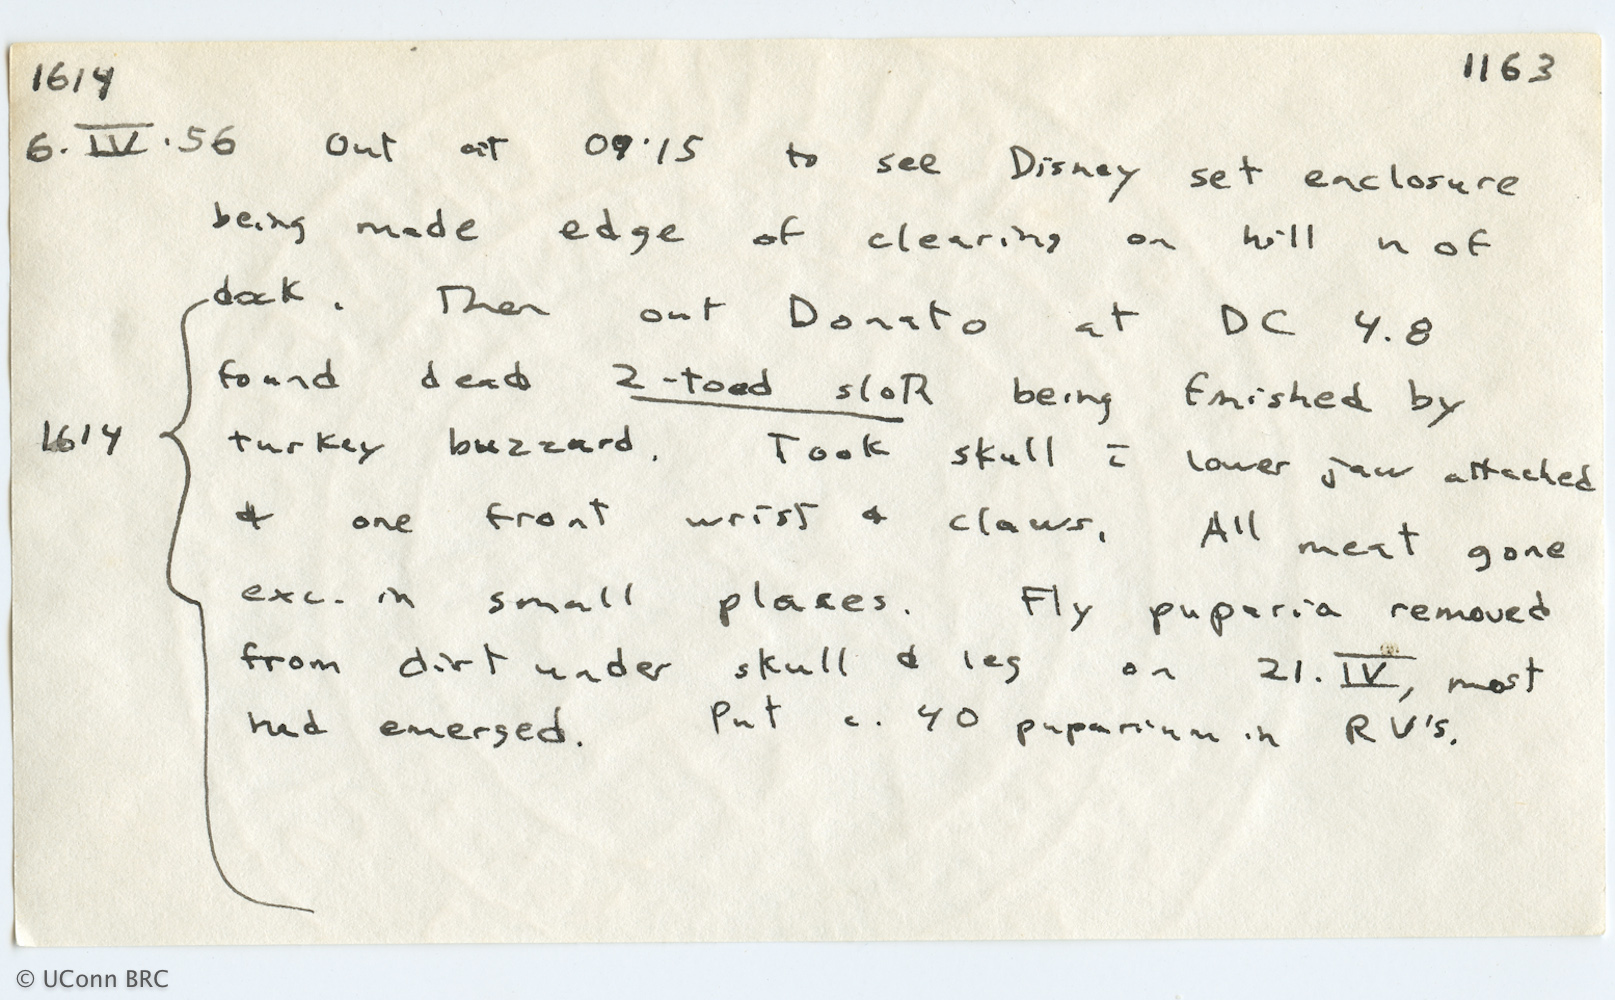 1614 1163
6.IV.56 Out at 09:15 to see Disney set enclosure
being made edge of clearing on hill n of
dock. Then out Donato at DC 4.8
found dead 2-toed sloth being finished by
1614 turkey buzzard. Took skull c̄ lower jaw attached
& one front wrist & claws. All meat gone
exc. in small places. Fly puparia removed
from dirt under skull & leg on 21.IV, most
had emerged. Put c. 40 puparium in RV's.
© UConn BRC